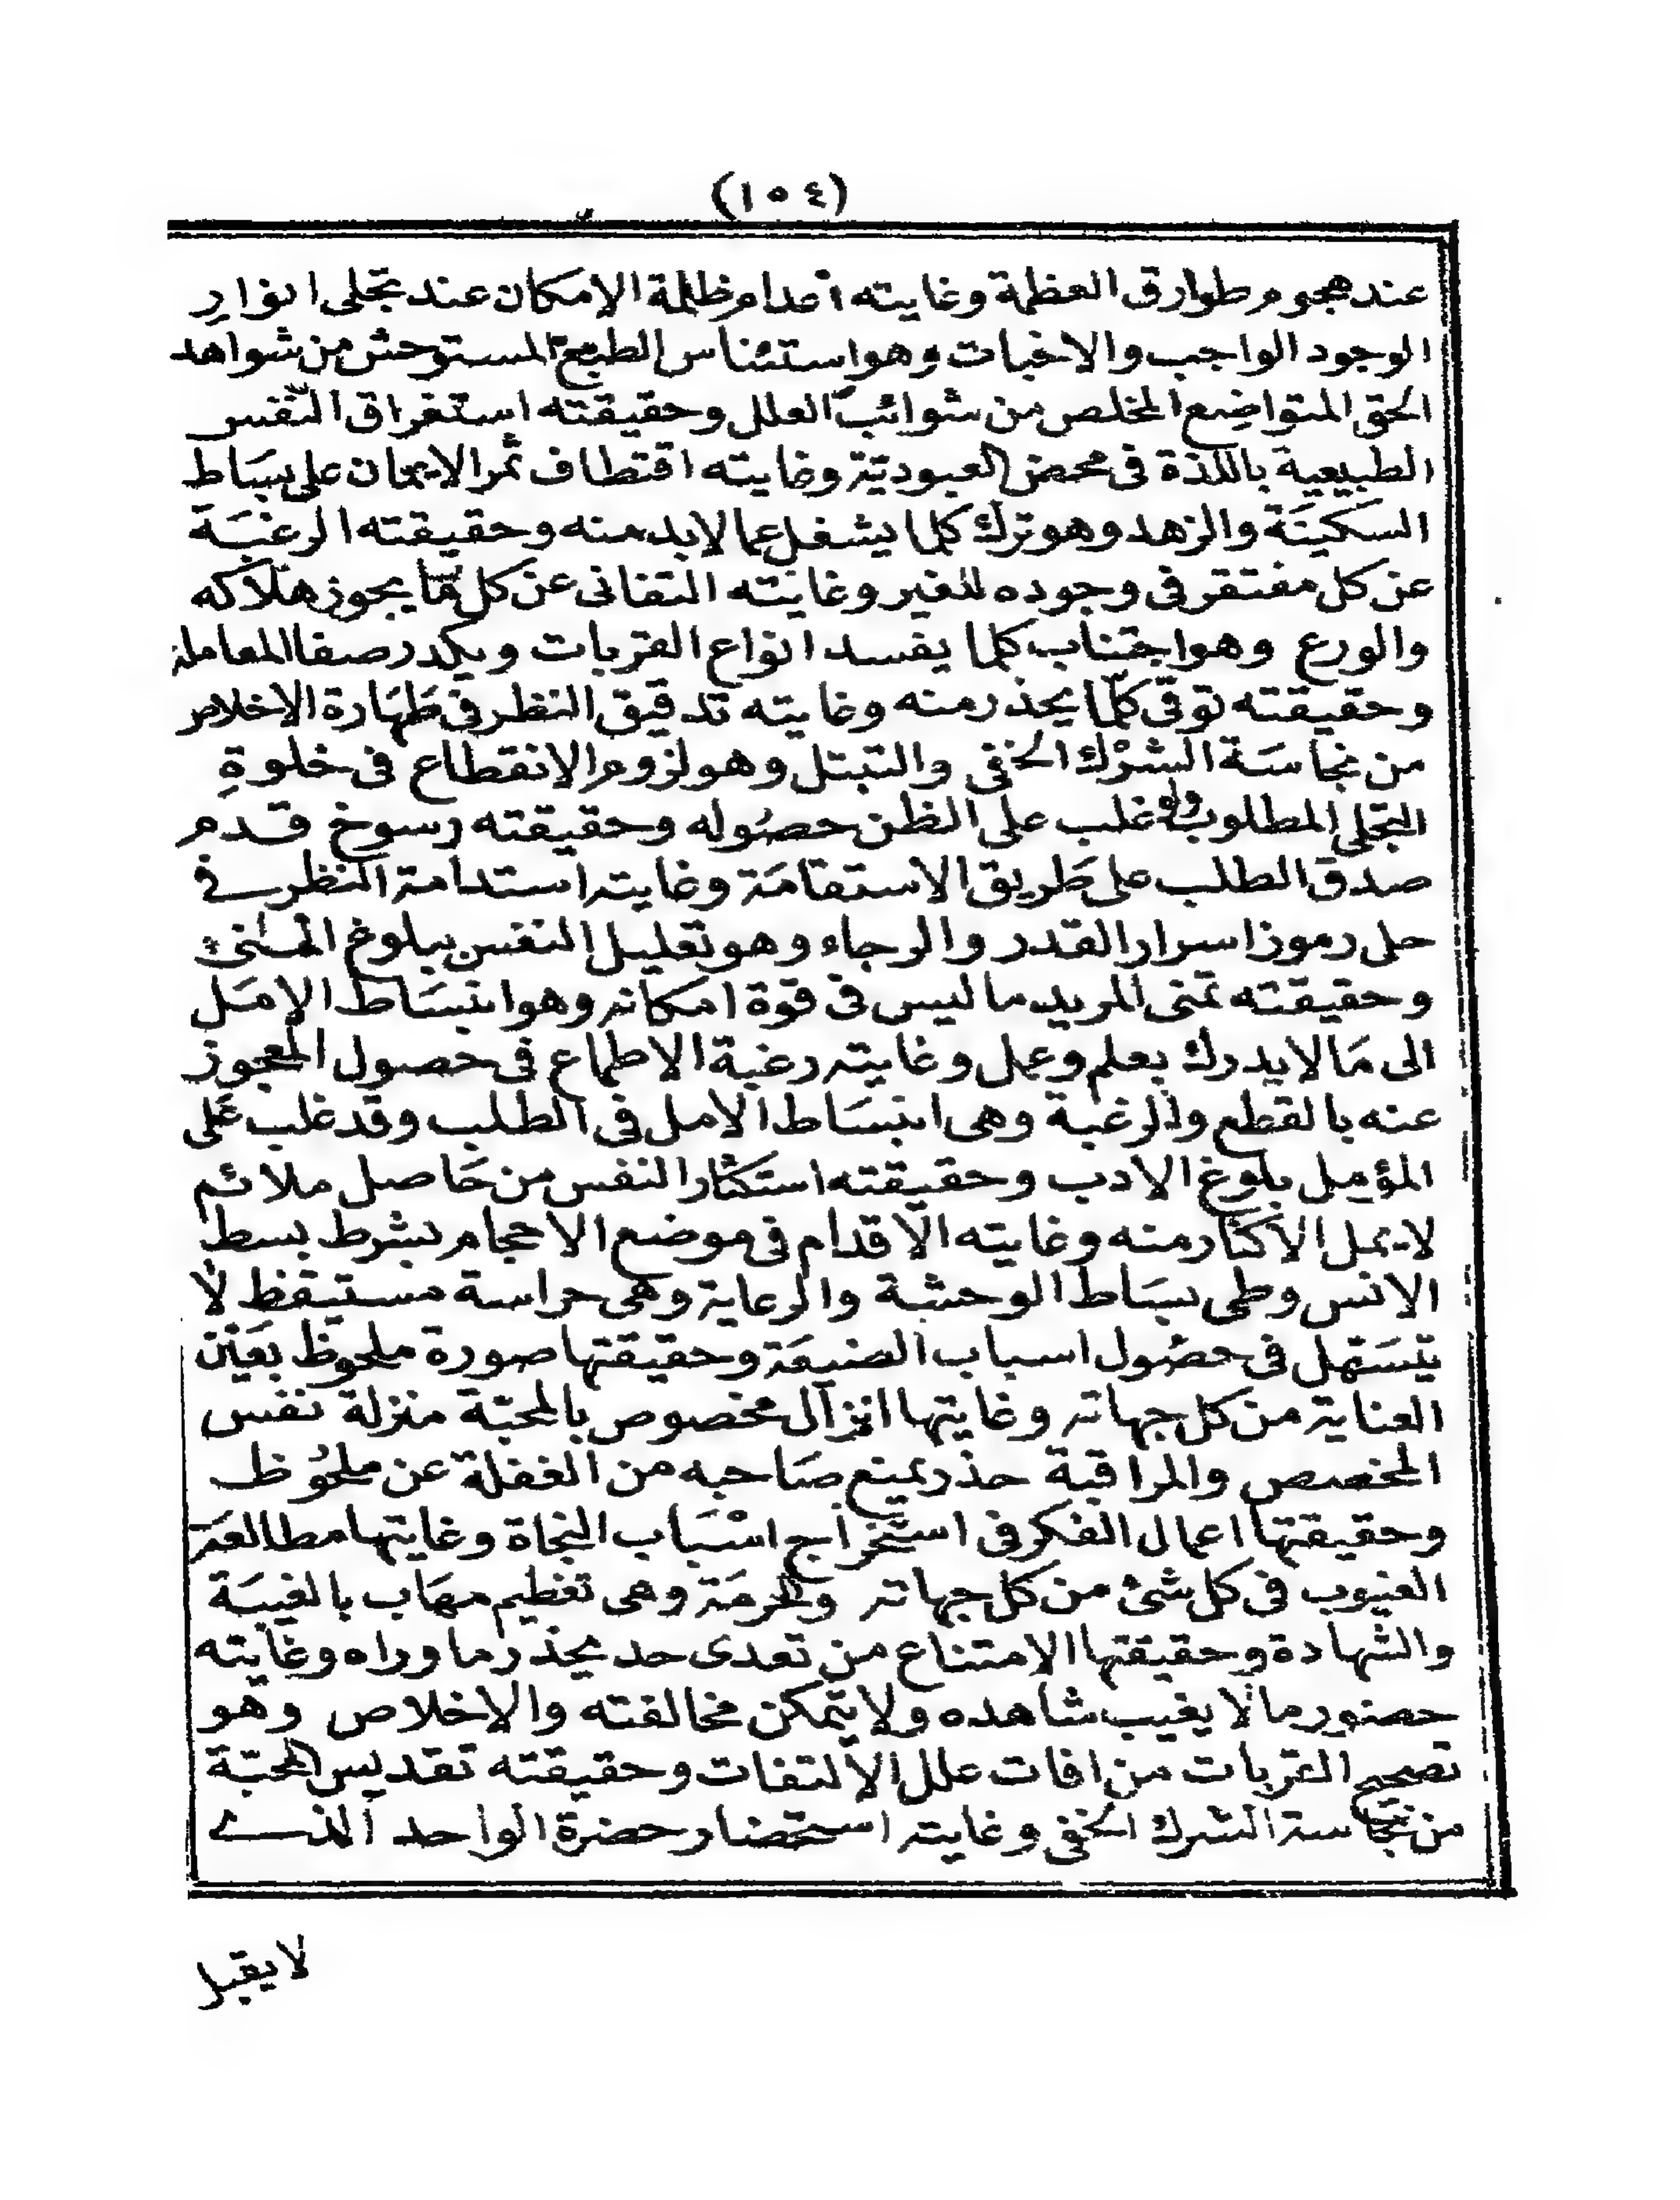 (١٥٤)
عند هجوم طوارق العظمة وغايته اعدام ظلمة الامكان عند تجلى انوار
الوجود الواجب والاخبات وهو استئناس الطبع المستوحش من شواهد
الحق المتواضع المخلص من شوائب العلل وحقيقته استغراق النّفس
الطبيعية باللذة فى محض العبوديّة وغايته اقتطاف ثمر الايمان على بسَاط
السكينَة والزهد وهو ترك كلما يشغل عما لابد منه وحقيقته الرغبَة
عن كل مفتقر فى وجوده للغير وغايَته التفانى عن كل مّا يجوز هلاكه
والورع وهو اجتناب كلما يفسد انواع القربات ويكدر صفا المعاملة
وحقيقته توقى كلّما يحذر منه وغايته تدقيق النظر فى طهَارة الاخلاص
من نجاسَة الشرْك الخفى والتبتل وهو لزوم الانقطاع فى خلوةِ
التجلى المطلوب ولو غلب على الظن حصُوله وحقيقته رسوخ قدم
صدق الطلب على طَريق الاستقامَة وغايته استدامة النظر فے
حل رموز اسرار القدر والرجاء وهو تعليل النفس ببلوغ المنىٰ
وحقيقته تمنى المريد ما ليس فى قوة امكانه وهو انبسَاط الامَل
الى مَا لا يدرك بعلم وعمل وغايته رغبة الاطماع فى حصول المعجوز
عنه بالقطع والرغبة وهى انبسَاط الامل فى الطلب وقد غلب عَلى
المؤمل بلوغ الادب وحقيقته استكثار النفس من حَاصل ملائم
لا يمل الاكثار منه وغايته الاقدام فى موضع الاحجام بشرط بسط
الانس وطى بسَاط الوحشة والرعاية وهى حراسة مستيقظ لا
يتسَهل فى حصُول اسباب الضيعَة وحقيقتها صورة ملحوظ بعَين
العناية من كل جهاته وغايتها انزال مخصوص بالمحبّة منزلة نفس
المخصص والمراقبة حذر يمنع صَاحبه من الغفلة عن ملحُوظ
وحقيقتها اعمال الفكر فى استخراج اسْبَاب النجاة وغايتها مطالعَة
الغيوب فى كل شئ من كل جهاته والحرمَة وهى تعظيم مهَاب بالغيبَة
والشهادة وحقيقتها الامتناع من تعدى حد يحذر ما وراه وغايته
حضور ما لا يغيب شاهده ولا يتمكن مخالفته والاخلاص وهو
تصحيح القربات من افات علل الالتفات وحقيقته تقديس المحبّة
من نجاسة الشرك الخفى وغايته استحضار حضرة الواحد الذے
لا يقبل